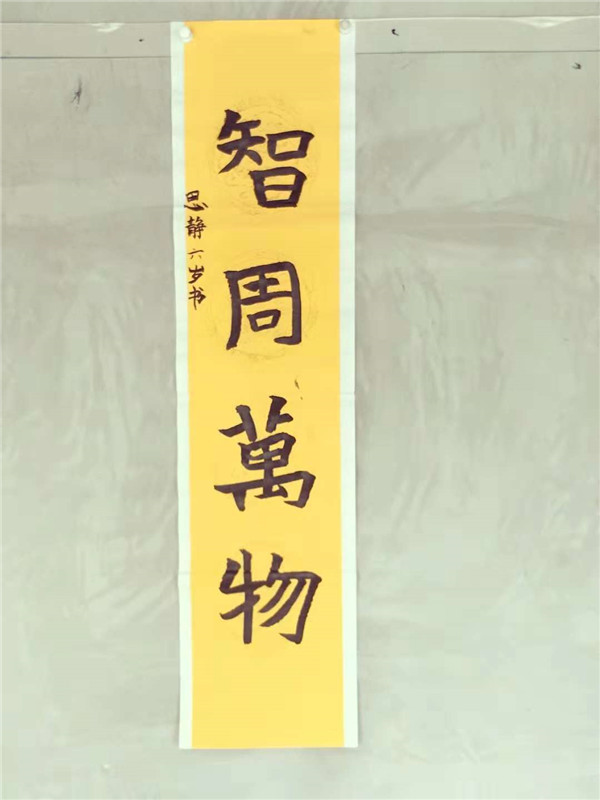 智周萬物
思静六岁书